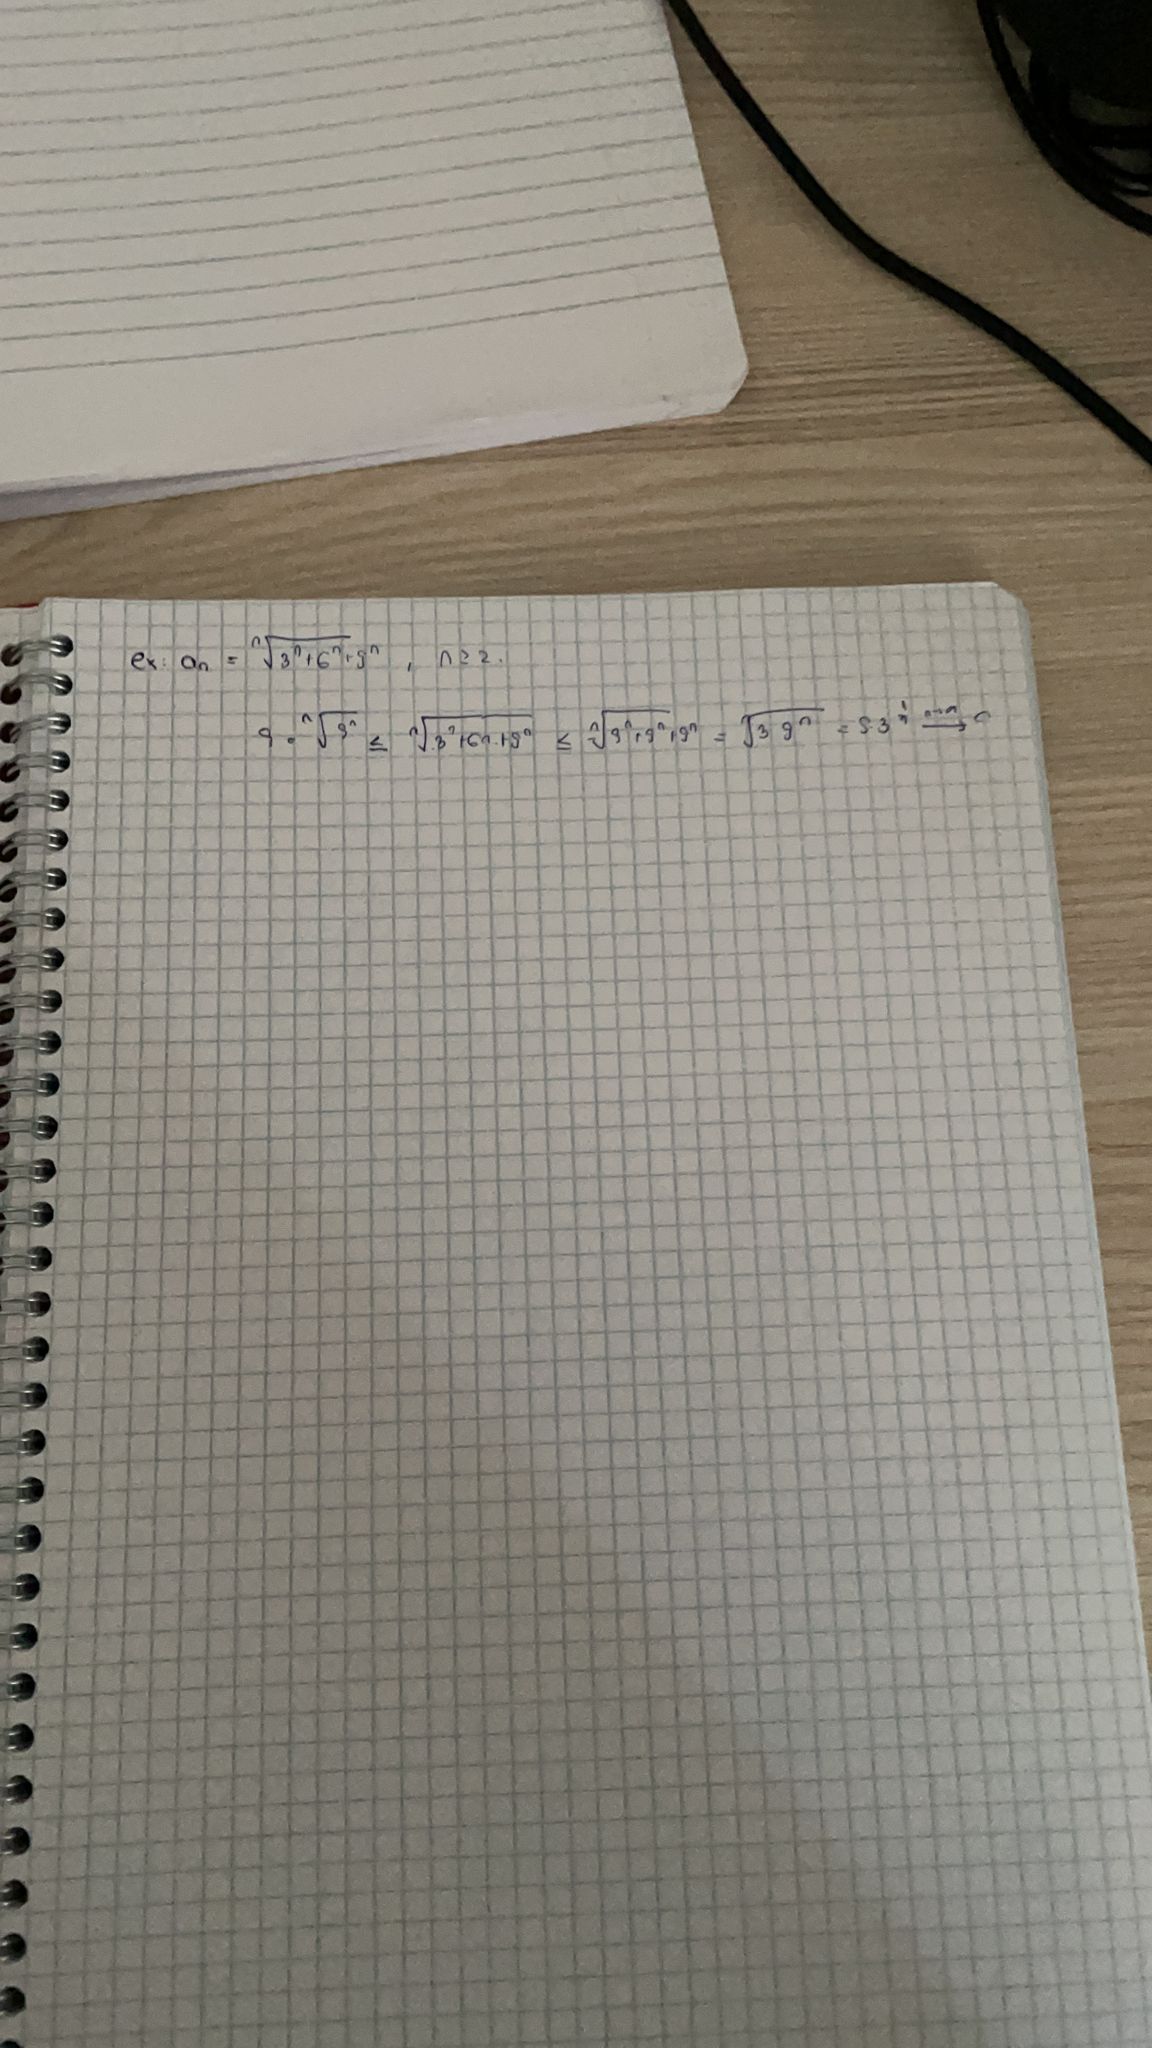 ex: aₙ = ⁿ√3ⁿ+6ⁿ+9ⁿ , n ≥ 2.
9 = ⁿ√9ⁿ ≤ ⁿ√3ⁿ+6ⁿ+9ⁿ ≤ ⁿ√9ⁿ+9ⁿ+9ⁿ = ⁿ√3 9ⁿ = 9·3^(1/n) → 9